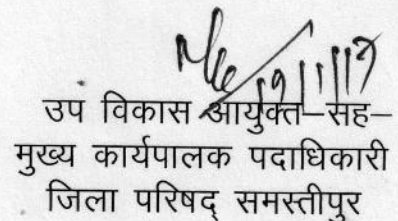 19/11/17
उप विकास आयुक्त–सह–
मुख्य कार्यपालक पदाधिकारी
जिला परिषद् समस्तीपुर